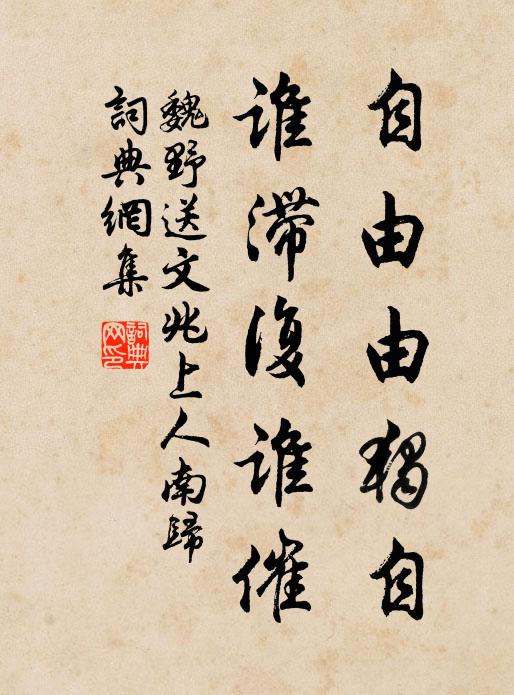 自由由獨自
誰滯復誰催
魏野送文兆上人南歸
詞典網集
詞典网印